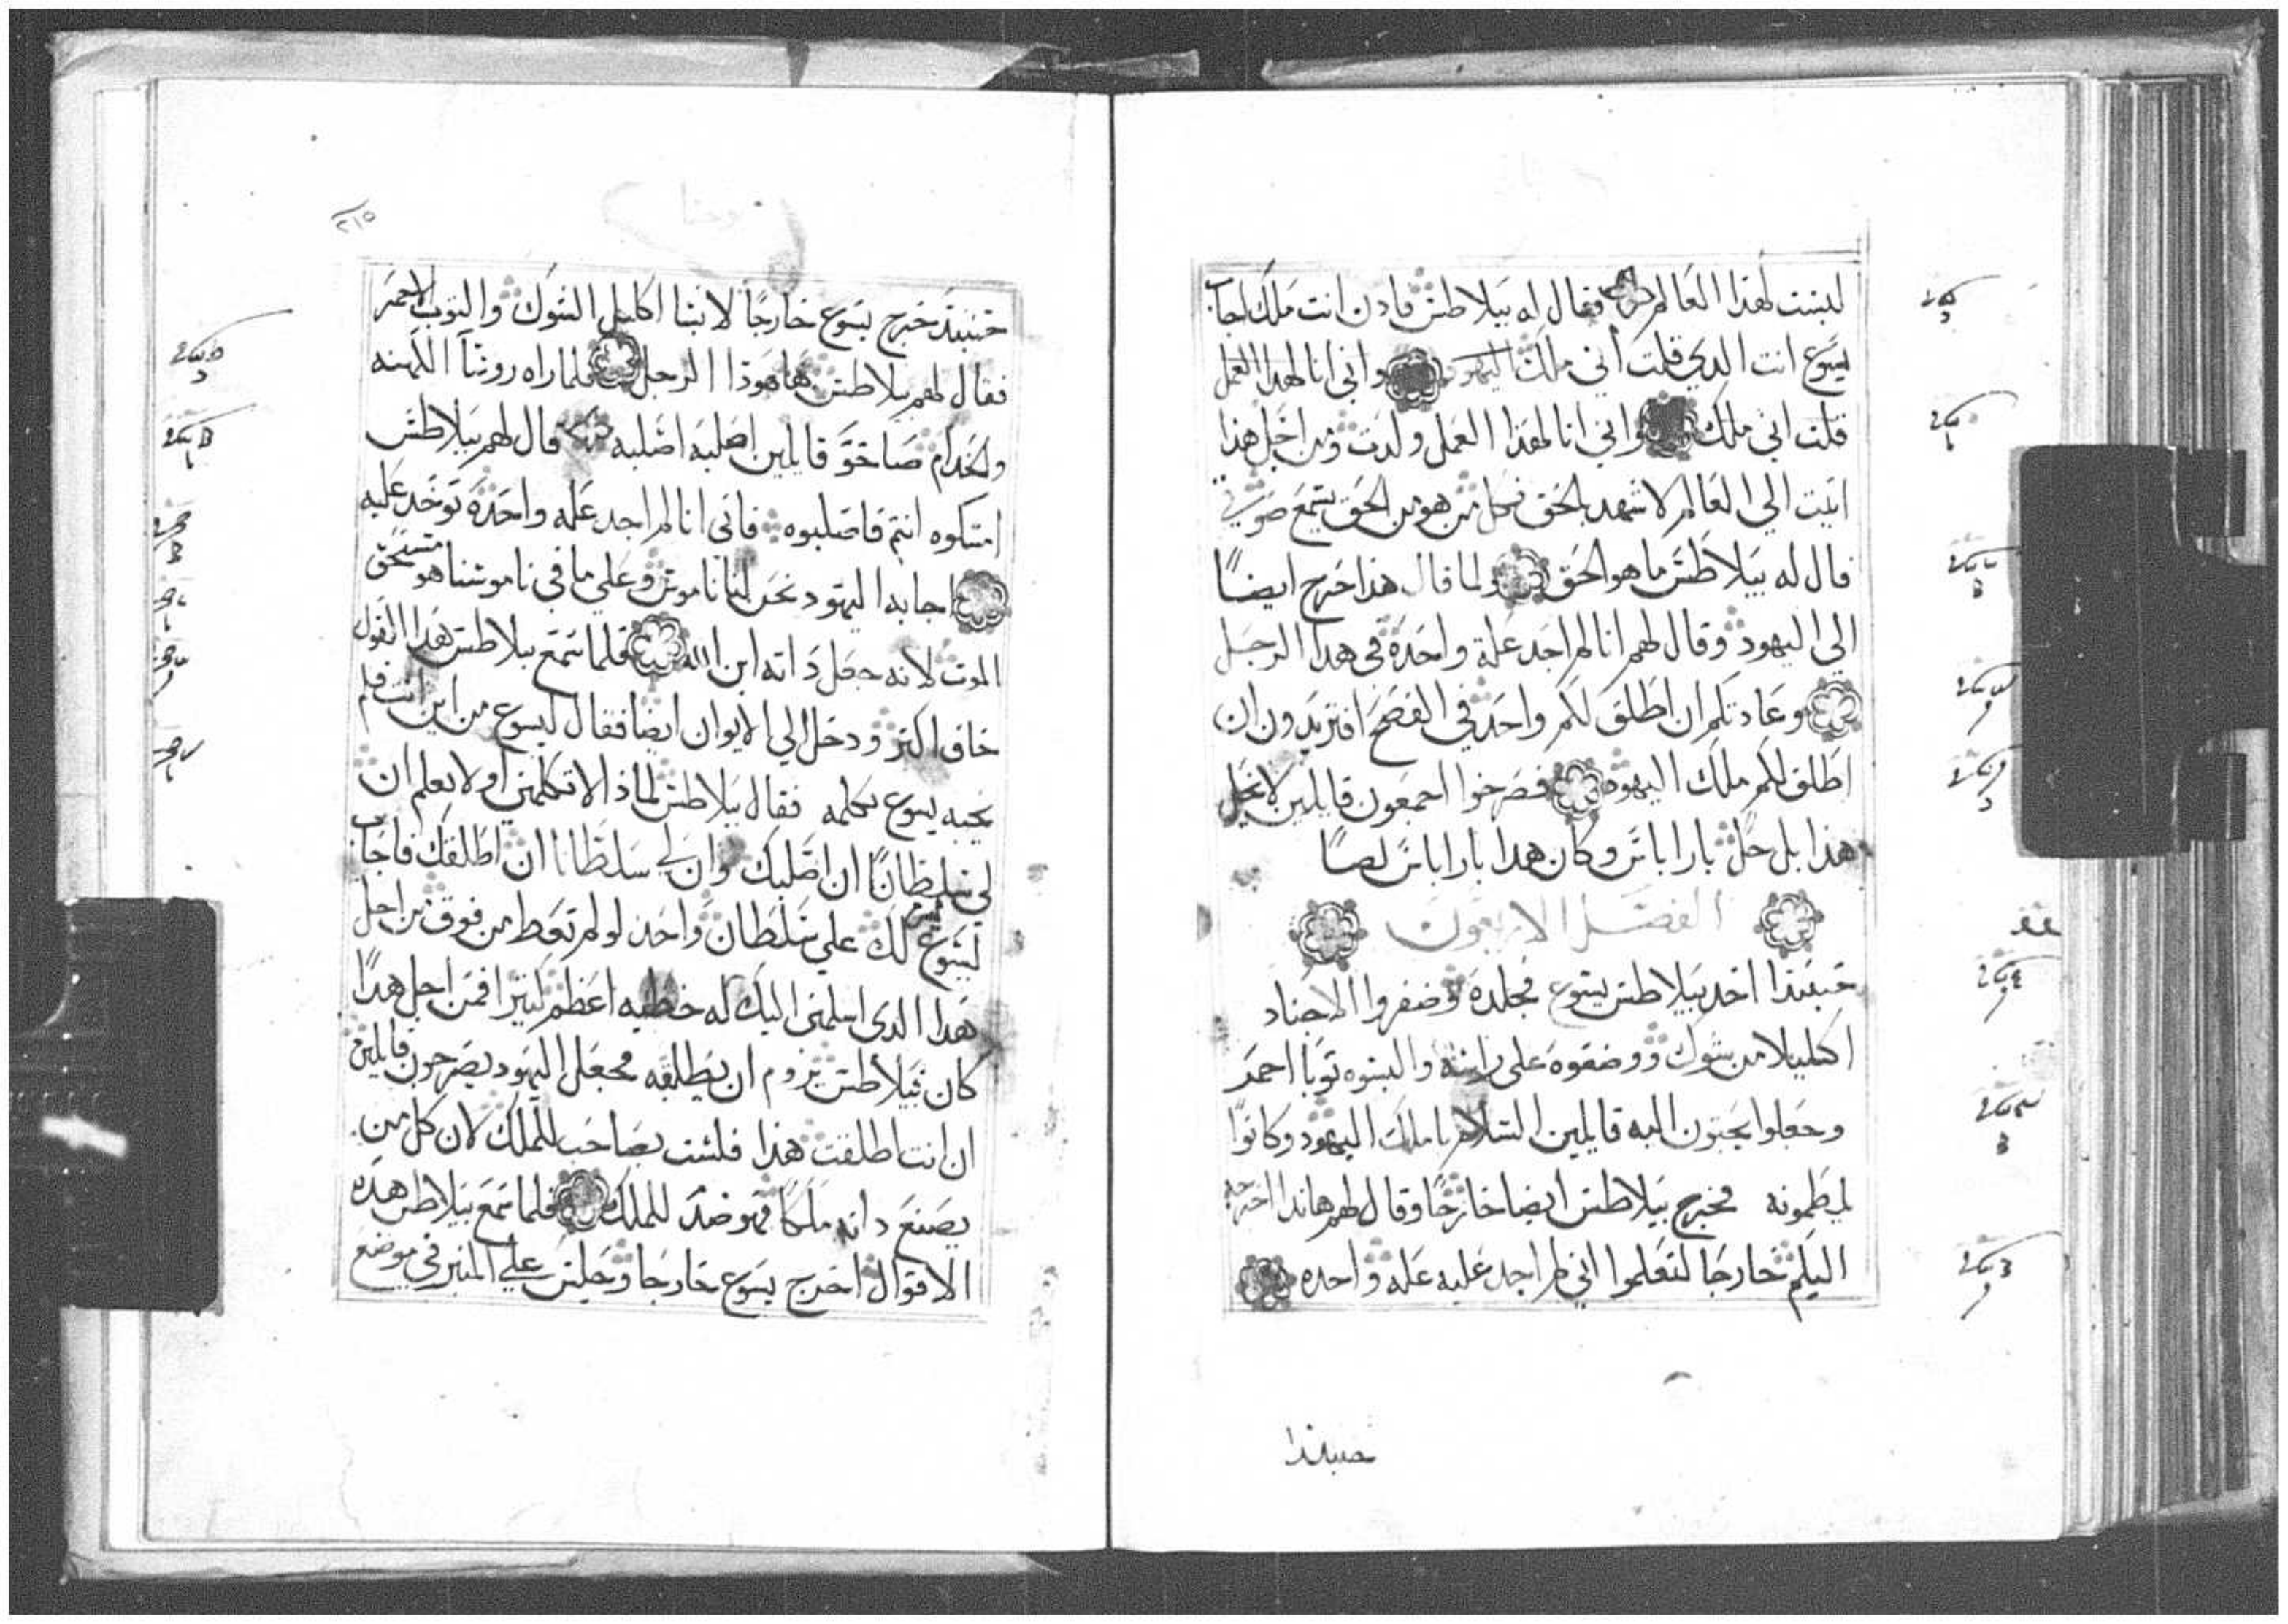 ليست لهذا العالم فقال له بيلاطس فادن انت ملك اجاب
يسوع انت الدي قلت أني ملك اليهود واني انا لهدا العمل
قلت اني ملك واني انا لهذا العمل ولدت ومن اجل هذا
اتيت الي العالم لاشهد بالحق فكل من هو من الحق يسمع صوتي
قال له بيلاطس ما هو الحق ولما قال هذا خرج ايضًا
الي اليهود وقال لهم انا لم اجد علة واحدة في هدا الرجل
وعادتكم ان اطلق لكم واحد في الفصح افتريدون ان
اطلق لكم ملك اليهود فصرخوا اجمعون قايلين لا تخل
هذا بل خل باراباس وكان هدا باراباس لصًا
الفصل الاربعون
حينيذا اخد بيلاطس يسوع فجلده وضفروا الاجناد
اكليلا من شوك ووضعوه على راسه والبسوه توبا احمر
وجعلوا يجتون اليه قايلين السلام يا ملك اليهود وكانوا
يلطمونه فخرج بيلاطس ايضا خارجًا وقال لهم هاندا اخرجه
اليكم خارجا لتعلموا اني لم اجد عليه عله واحده
حينيذا
٢١٥
حينيذ خرج يسوع خارجًا لابسا اكليل الشوك والتوب الاحمر
فقال لهم بيلاطس هاهوذا الرجل فلما راه روسآ الكهنه
والخدام صاحو قايلين اصلبه اصلبه قال لهم بيلاطس
امسكوه انتم فاصلبوه فانى انا لم اجد عله واحدة توخد عليه
اجابه اليهود نحن لنا ناموس وعلي ما في ناموسنا هو مستحق
الموت لانه جعل داته ابن الله فلما سمع بيلاطس هدا القول
خاف اكتر ودخل الي الايوان ايضا فقال ليسوع من اين انت فلم
يجبه يسوع بكلمه فقال بيلاطس لماذا لا تكلمني او لا تعلم ان
لي سلطانًا ان اصلبك وان لي سلطانا ان اطلقك فاجاب
يسوع ليس لك علي سلطان واحد لو لم تعط من فوق من اجل
هدا الدى اسلمني اليك له خطيه اعظم كتيرا فمن اجل هدا
كان بيلاطس يروم ان يطلقه فجعل اليهود يصرخون قايلين
ان انت اطلقت هذا فلست بصاحب للملك لان كل من
يصنع داته ملكا فهو ضد للملك فلما سمع بيلاطس هده
الاقوال اخرج يسوع خارجا وجلس علي المنبر في موضع